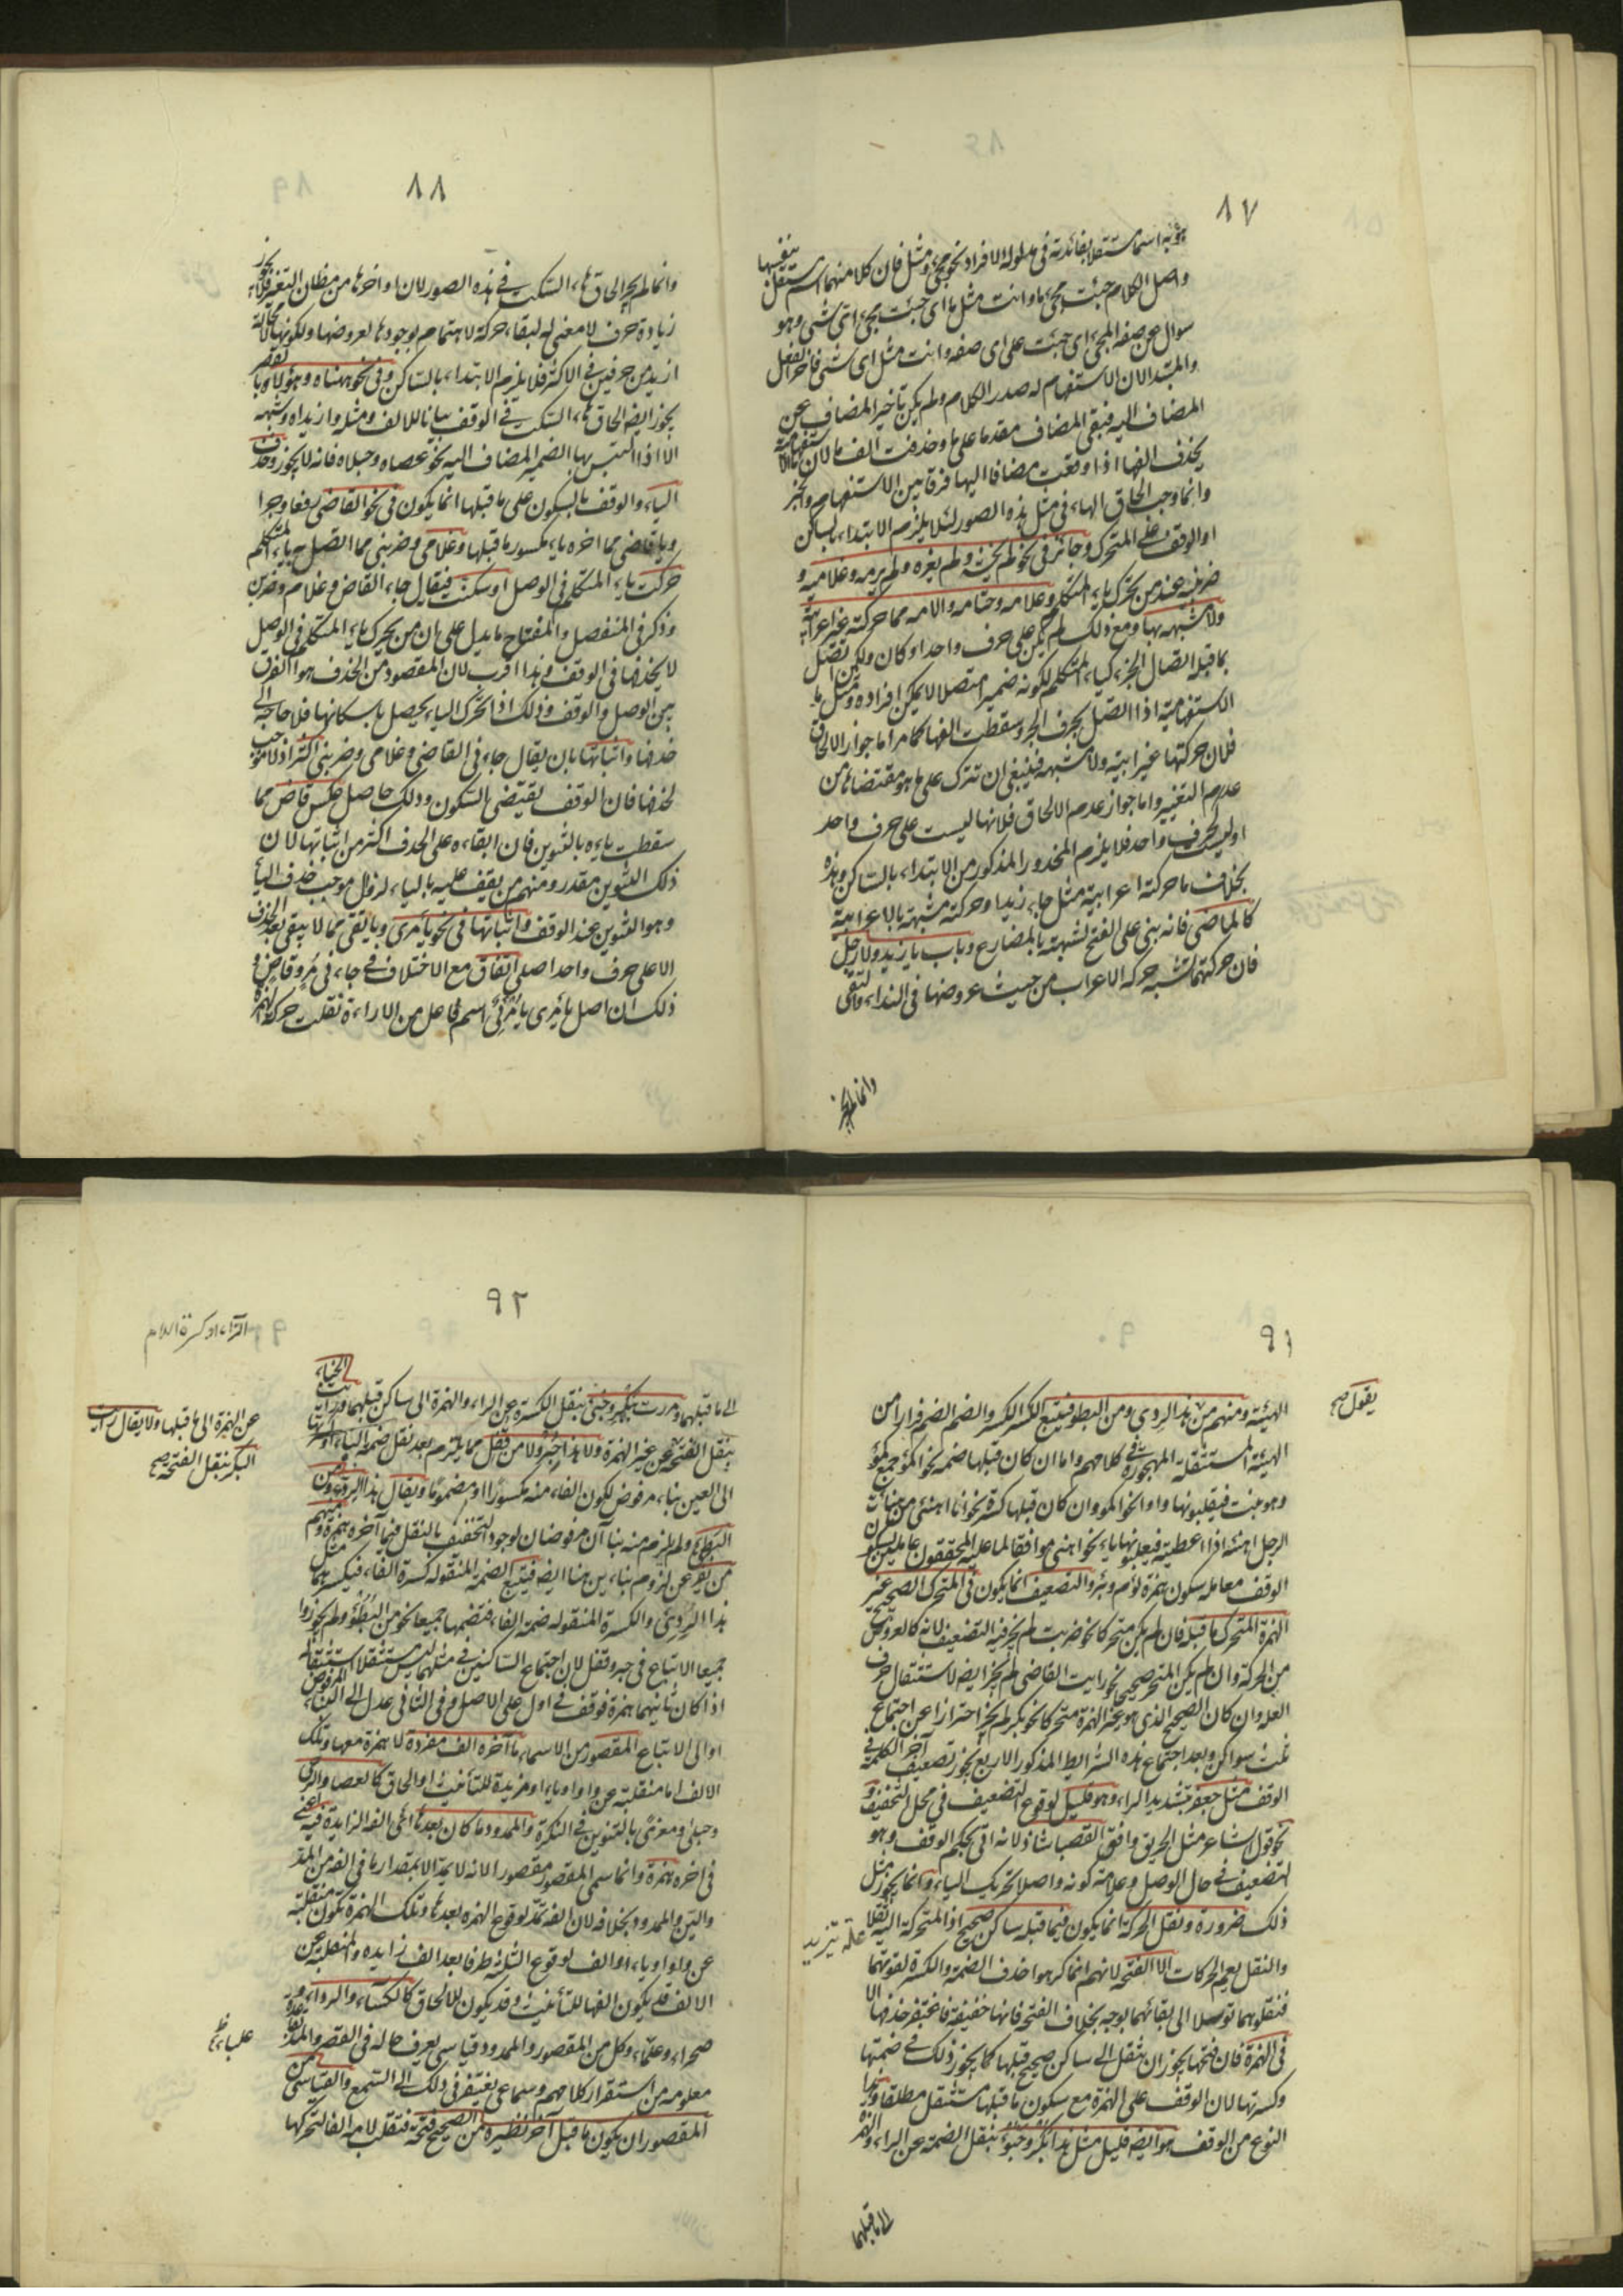 ٨٧
واصل الكلام جئت مجئ ما وانت مثل ما اى جئت مجئ اى شئ وهو
سوال عن صفة المجئ اى جئت على اى صفة وانت مثل اى شئ فاخر الفعل
والمبتدا لان الاستفهام له صدر الكلام ولم يكن تاخير المضاف عن
المضاف اليه فبقى المضاف مقدما على ما وحذفت الف ما لان ما الاستفهامية
يحذف الفها اذا وقعت مضافا اليها فرقا بين الاستفهام والخبر
وانما وجب الحاق الهاء فى مثل هذه الصور لئلا يلزم الابتداء بالساكن
او الوقف على المتحرك وجائز فى نحو لم يخشه ولم يغزه ولم يرمه وغلاميه و
ضربنيه عند من يحرك ياء المتكلم وعلامه وحتامه والامه مما حركته غير اعرابية
ولا مشبهة بها ومع ذلك لم يكن على حرف واحد او كان ولكن اتصل
بما قبله اتصال الجزء كياء المتكلم لكونه ضميرا متصلا لا يمكن افراده ومثل ما
الاستفهامية اذا اتصل بحرف الجر وسقطت الفها كما مر اما جواز الالحاق
فلان حركتها غير اعرابية ولا مشبهة فينبغى ان تترك على ما هو مقتضاه من
عدم التغيير واما جواز عدم الالحاق فلانها ليست على حرف واحد
او ليس كحرف واحد فلا يلزم المحذور المذكور من الابتداء بالساكن وهذه
بخلاف ما حركته اعرابية مثل جاء زيد او حركته مشبهة بالاعرابية
كالماضى فانه بنى على الفتح لشبهه بالمضارع وباب يا زيد ولا رجل
فان حركتهما تشبه حركة الاعراب من حيث عروضها فى النداء والنفى
وانما لم يجز
٨٨
وانما لم يجز الحاق هاء السكت فى هذه الصور لان اواخرها من مظان التغير فلا يجوز
زيادة حرف لا معنى له لبقاء حركة لا اهتمام بوجودها لعروضها ولكونها لا محالة
ازيد من حرفين فى الاكثر فلا يلزم الابتداء بالساكن وفى نحو ههناه وهؤلاه
يجوز ايضا الحاق هاء السكت فى الوقف بيانا للالف ومثله وا زيداه وشبهه
الا اذا التبس بها الضمير المضاف اليه نحو عصاه وحبلاه فانه لا يجوز وحذف
الياء والوقف بالسكون على ما قبلها انما يكون فى نحو القاضى رفعا وجرا
ويا قاضى مما اخره ياء مكسور ما قبلها وغلامى وضربنى مما اتصل به ياء المتكلم
حركت ياء المتكلم فى الوصل او سكنت فيقال جاء القاض وغلام وضربن
وذكر فى المنفصل والمفتاح ما يدل على ان من يحرك ياء المتكلم فى الوصل
لا يحذفها فى الوقف وهذا اقرب لان المقصود من الحذف هو الفرق
بين الوصل والوقف وذلك اذا تحرك الياء يحصل باسكانها فلا حاجة الى
حذفها واثباتها بان يقال جاءنى القاضى وغلامى وضربنى اكثر اذ لا موجب
لحذفها فان الوقف يقتضى السكون وذلك حاصل عكس قاض مما
سقطت ياءه بالتنوين فان ابقاءه على الحذف اكثر من اثباتها لان
ذلك التنوين مقدر ومنهم من يقف عليه بالياء لزوال موجب حذف الياء
وهو التنوين عند الوقف واثباتها فى نحو يا مرى ويا يقى مما لا يبقى بعد الحذف
الا على حرف واحد اصلى اتفاق مع الاختلاف فى جاءنى مر وقاض و
ذلك ان اصل يا مرى يا مرئى اسم فاعل من الاراءة نقلت حركة الهمزة
٩١
يقول صح
الهيئة ومنهم من هذا الردى ومن البطو فيتبع الكسر الكسر والضم الضم فرارا من
الهيئة المستثقلة المهجورة فى كلامهم واما ان كان قبلها ضمة نحو اكمؤ جمع كمؤ
وهو نبت فيقلبونها واوا نحو اكمو وان كان قبلها كسرة نحو انا اهنئ من هنأت
الرجل اهنئه اذا اعطيته فيقلبونها ياء نحو اهنى موافقا لما عليه المحققون عاملين سكون
الوقف معاملة سكون همزة لؤم وبئر والتضعيف انما يكون فى المتحرك الصحيح غير
الهمزة المتحرك ما قبله فان لم يكن متحركا نحو ضربت لم يجز فيه التضعيف لانه كالعوض
من الحركة وان لم يكن المتحرك صحيحا نحو رايت القاضى لم يجز ايضا لاستثقال حرف
العلة وان كان الصحيح الذى هو غير الهمزة متحركا نحو بكر لم يجز احترازا عن اجتماع
ثلث سواكن وبعد اجتماع هذه الشرايط المذكورة الاربع يجوز تضعيف آخر الكلمة فى
الوقف مثل جعفر بتشديد الراء وهو قليل لوقوع التضعيف فى محل التخفيف و
نحو قول الشاعر مثل الحريق وافق القصبا شاذ لانه اتى بحكم الوقف وهو
التضعيف فى حال الوصل وعلامة كونه واصلا تحريك الياء وانما يجوز مثل
ذلك ضرورة ونقل الحركة انما يكون فيما قبله ساكن صحيح اذ المتحركة اليه ثقلا
والنقل يعم الحركات الا الفتحة لانهم انما كرهوا حذف الضمة والكسرة لقوتهما
فنقلوهما توصلا الى بقائهما بوجه بخلاف الفتحة فانها خفيفة فاغتفر حذفها الا
فى الهمزة فان فتحها يجوز ان ينقل الى ساكن صحيح قبلها كما يجوز ذلك فى ضمتها
وكسرتها لان الوقف على الهمزة مع سكون ما قبلها مستثقل مطلقا وهذا
النوع من الوقف هو ايضا قليل مثل هذا بكر وخبؤ بنقل الضمة عن الراء والهمزة
الى ما قبلهما
٩٢
الى ما قبلهما ومررت ببكر وخبئ بنقل الكسرة عن الراء والهمزة الى ساكن قبلهما ورايت الخباء
بنقل الفتحة عن عن الهمزة ولا هذا حبر ولا من قفل مما يلزم بعد نقل ضمة الباء
الى العين بناء مرفوض لكون الفاء منه مكسورا او مضموما ويقال هذا الردؤ ومن
البطئ ولم يلزم منه بناآن مرفوضان لوجود التخفيف بالنقل فيما آخره همزة ومنهم
من يفر عن لزوم بناءين هنا ايضا فيتبع الضمة المنقولة كسرة الفاء فيكسرهما مثل
هذا الردئ والكسرة المنقولة ضمة الفاء فتضمها جميعا نحو من البطؤ ولم يجوزوا
جميعا الاتباع فى حبر وقفل لان اجتماع الساكنين فى مثلهما ليس مستثقلا استثقاله
اذا كان ثانيهما همزة فوقف فى اول على الاصل وفى الثانى عدل الى البناء المرفوض
او الى الاتباع المقصور من الاسماء ما آخره الف مفردة لا همزة معها وتلك
الالف اما منقلبة عن واو او ياء او مزيدة للتأنيث او الحاق كالعصا والرحى
وحبلى ومعزى بالتنوين فى النكرة والممدود ما كان بعدها اى الف الزايدة فيه
فى اخره همزة وانما سمى المقصور مقصورا لانه لا يمد الا بمقدار ما فى الفه من المد
واللين والممدود بخلافه لان الفه تمد لوقوع الهمزة بعدها وتلك الهمزة تكون منقلبة
عن واو او ياء او الف لوقوع الثلثة طرفا بعد الف زايدة والمنقلبة عن
الالف قد يكون الفها للتأنيث وقد يكون للالحاق كالكساء والرداء و
صحراء وعلباء وكل من المقصور والممدود قياسى يعرف حاله فى القصر والمد
معلومة من استقرار كلامهم وسماعى يفتقر فى ذلك الى السمع والقياسى من
المقصور ان يكون ما قبل آخر نظيره من الصحيح فتحة فتقلب لامه الفا لتحركها
الراء او كسرة اللام
عن الهمزة الى ما قبلها ولا يقال رايت
البكر بنقل الفتحة صح
علباء